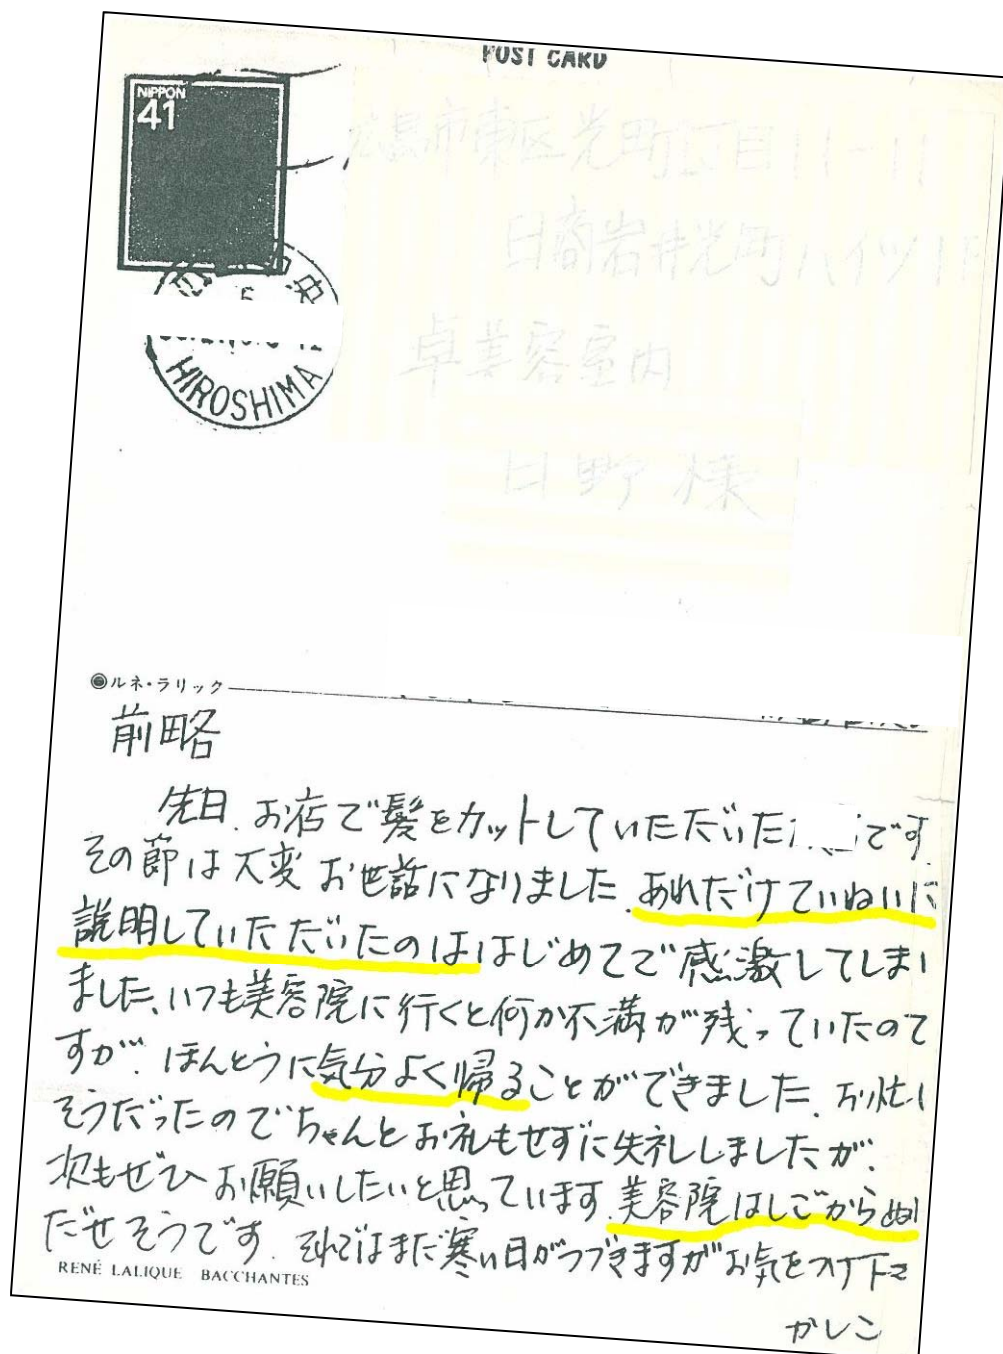 POST CARD
NIPPON
41
HIROSHIMA
市東区光町 丁目11-11
日商岩井光町ハイツ1F
卓美容室内
日野様
◉ルネ・ラリック
前略
先日、お店で髪をカットしていただいた です。
その節は大変お世話になりました。あれだけていねいに
説明していただいたのははじめてで感激してしまい
ました、いつも美容院に行くと何か不満が残っていたので
すが、ほんとうに気分よく帰ることができました、お忙し
そうだったのでちゃんとお礼もせずに失礼しましたが、
次もぜひお願いしたいと思っています。美容院はしごからぬけ
だせそうです。それではまだ寒い日がつづきますがお気をつけ下さ
かしこ
RENÉ LALIQUE BACCHANTES